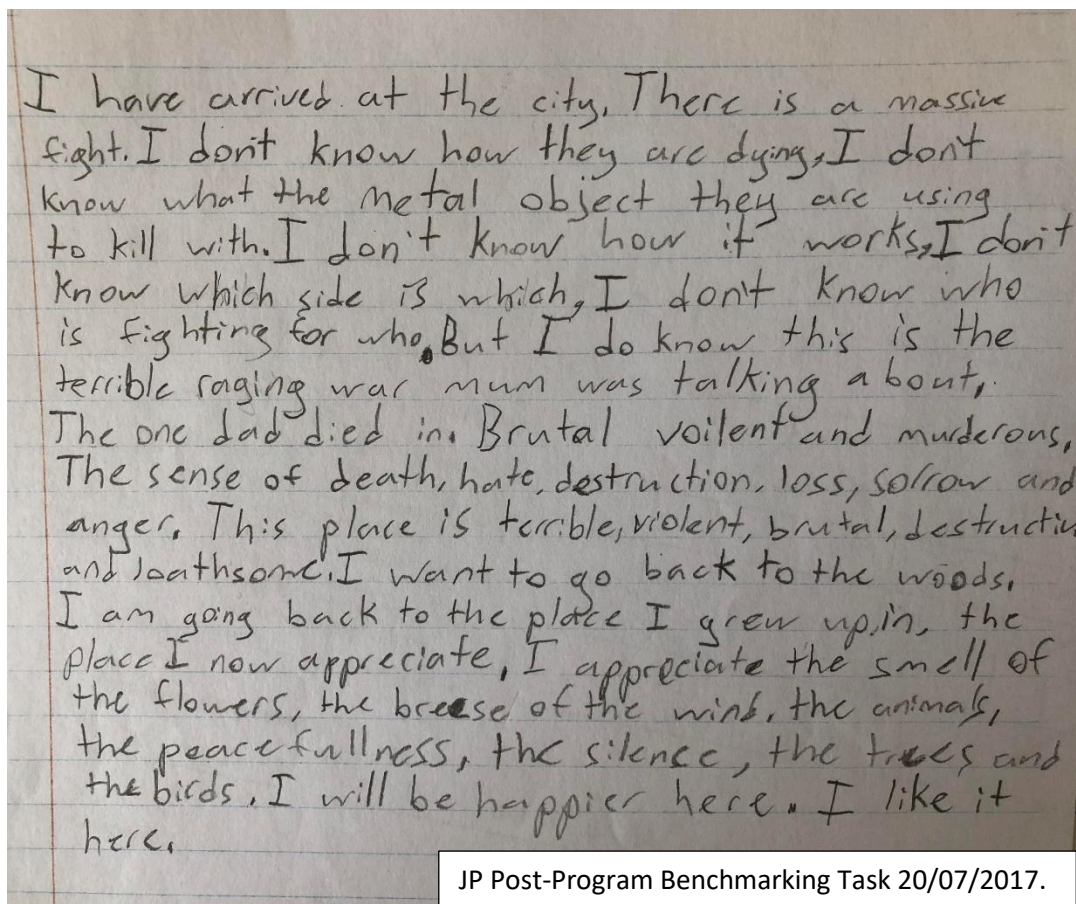 I have arrived at the city. There is a massive
fight. I don't know how they are dying, I don't
know what the metal object they are using
to kill with. I don't know how it works, I don't
know which side is which, I don't know who
is fighting for who. But I do know this is the
terrible raging war mum was talking about,
The one dad died in. Brutal voilent and murderous,
The sense of death, hate, destruction, loss, sorrow and
anger. This place is terrible, violent, brutal, destructiv
and loathsome. I want to go back to the woods.
I am going back to the place I grew up in, the
place I now appreciate, I appreciate the smell of
the flowers, the breese of the wind, the animals,
the peacefullness, the silence, the trees and
the birds. I will be happier here. I like it
here.
JP Post-Program Benchmarking Task 20/07/2017.